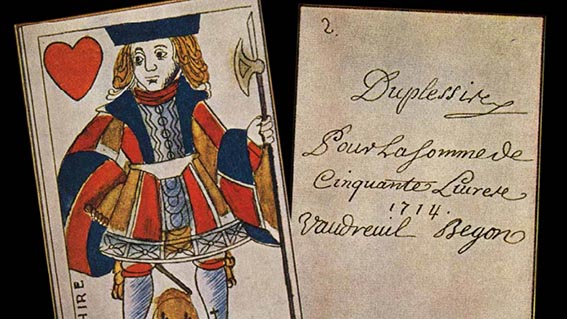 HIRE
2.
Duplessis
Pour la Somme de
Cinquante Livres
1714.
Vaudreuil Begon